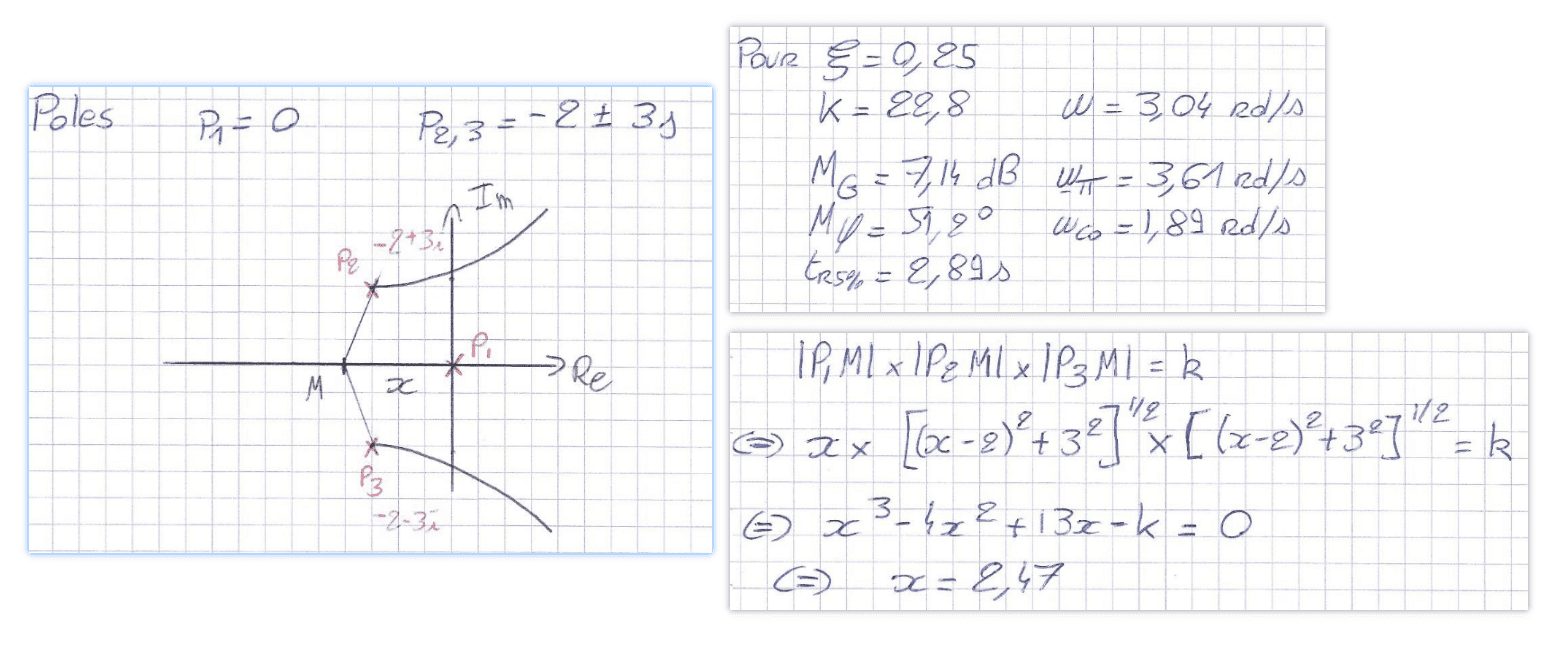 Poles P₁ = 0 P₂,₃ = -2 ± 3j
Im
-2+3i
P₂
P₁
M x Re
P₃
-2-3i
Pour ξ = 0,25
K = 22,8 ω = 3,04 rd/s
M_G = 7,14 dB ω_π = 3,61 rd/s
Mφ = 51,2° ω_co = 1,89 rd/s
t_R5% = 2,89 s
|P₁M| x |P₂M| x |P₃M| = k
(=) x × [(x-2)² + 3²]^1/2 × [(x-2)² + 3²]^1/2 = k
(=) x³ - 4x² + 13x - k = 0
(=) x = 2,47